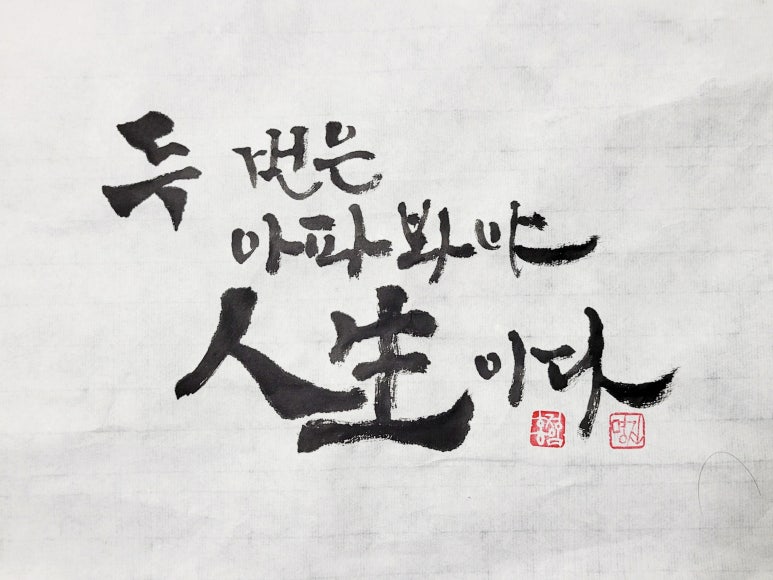 두 번은
아파봐야
人生이다
명진